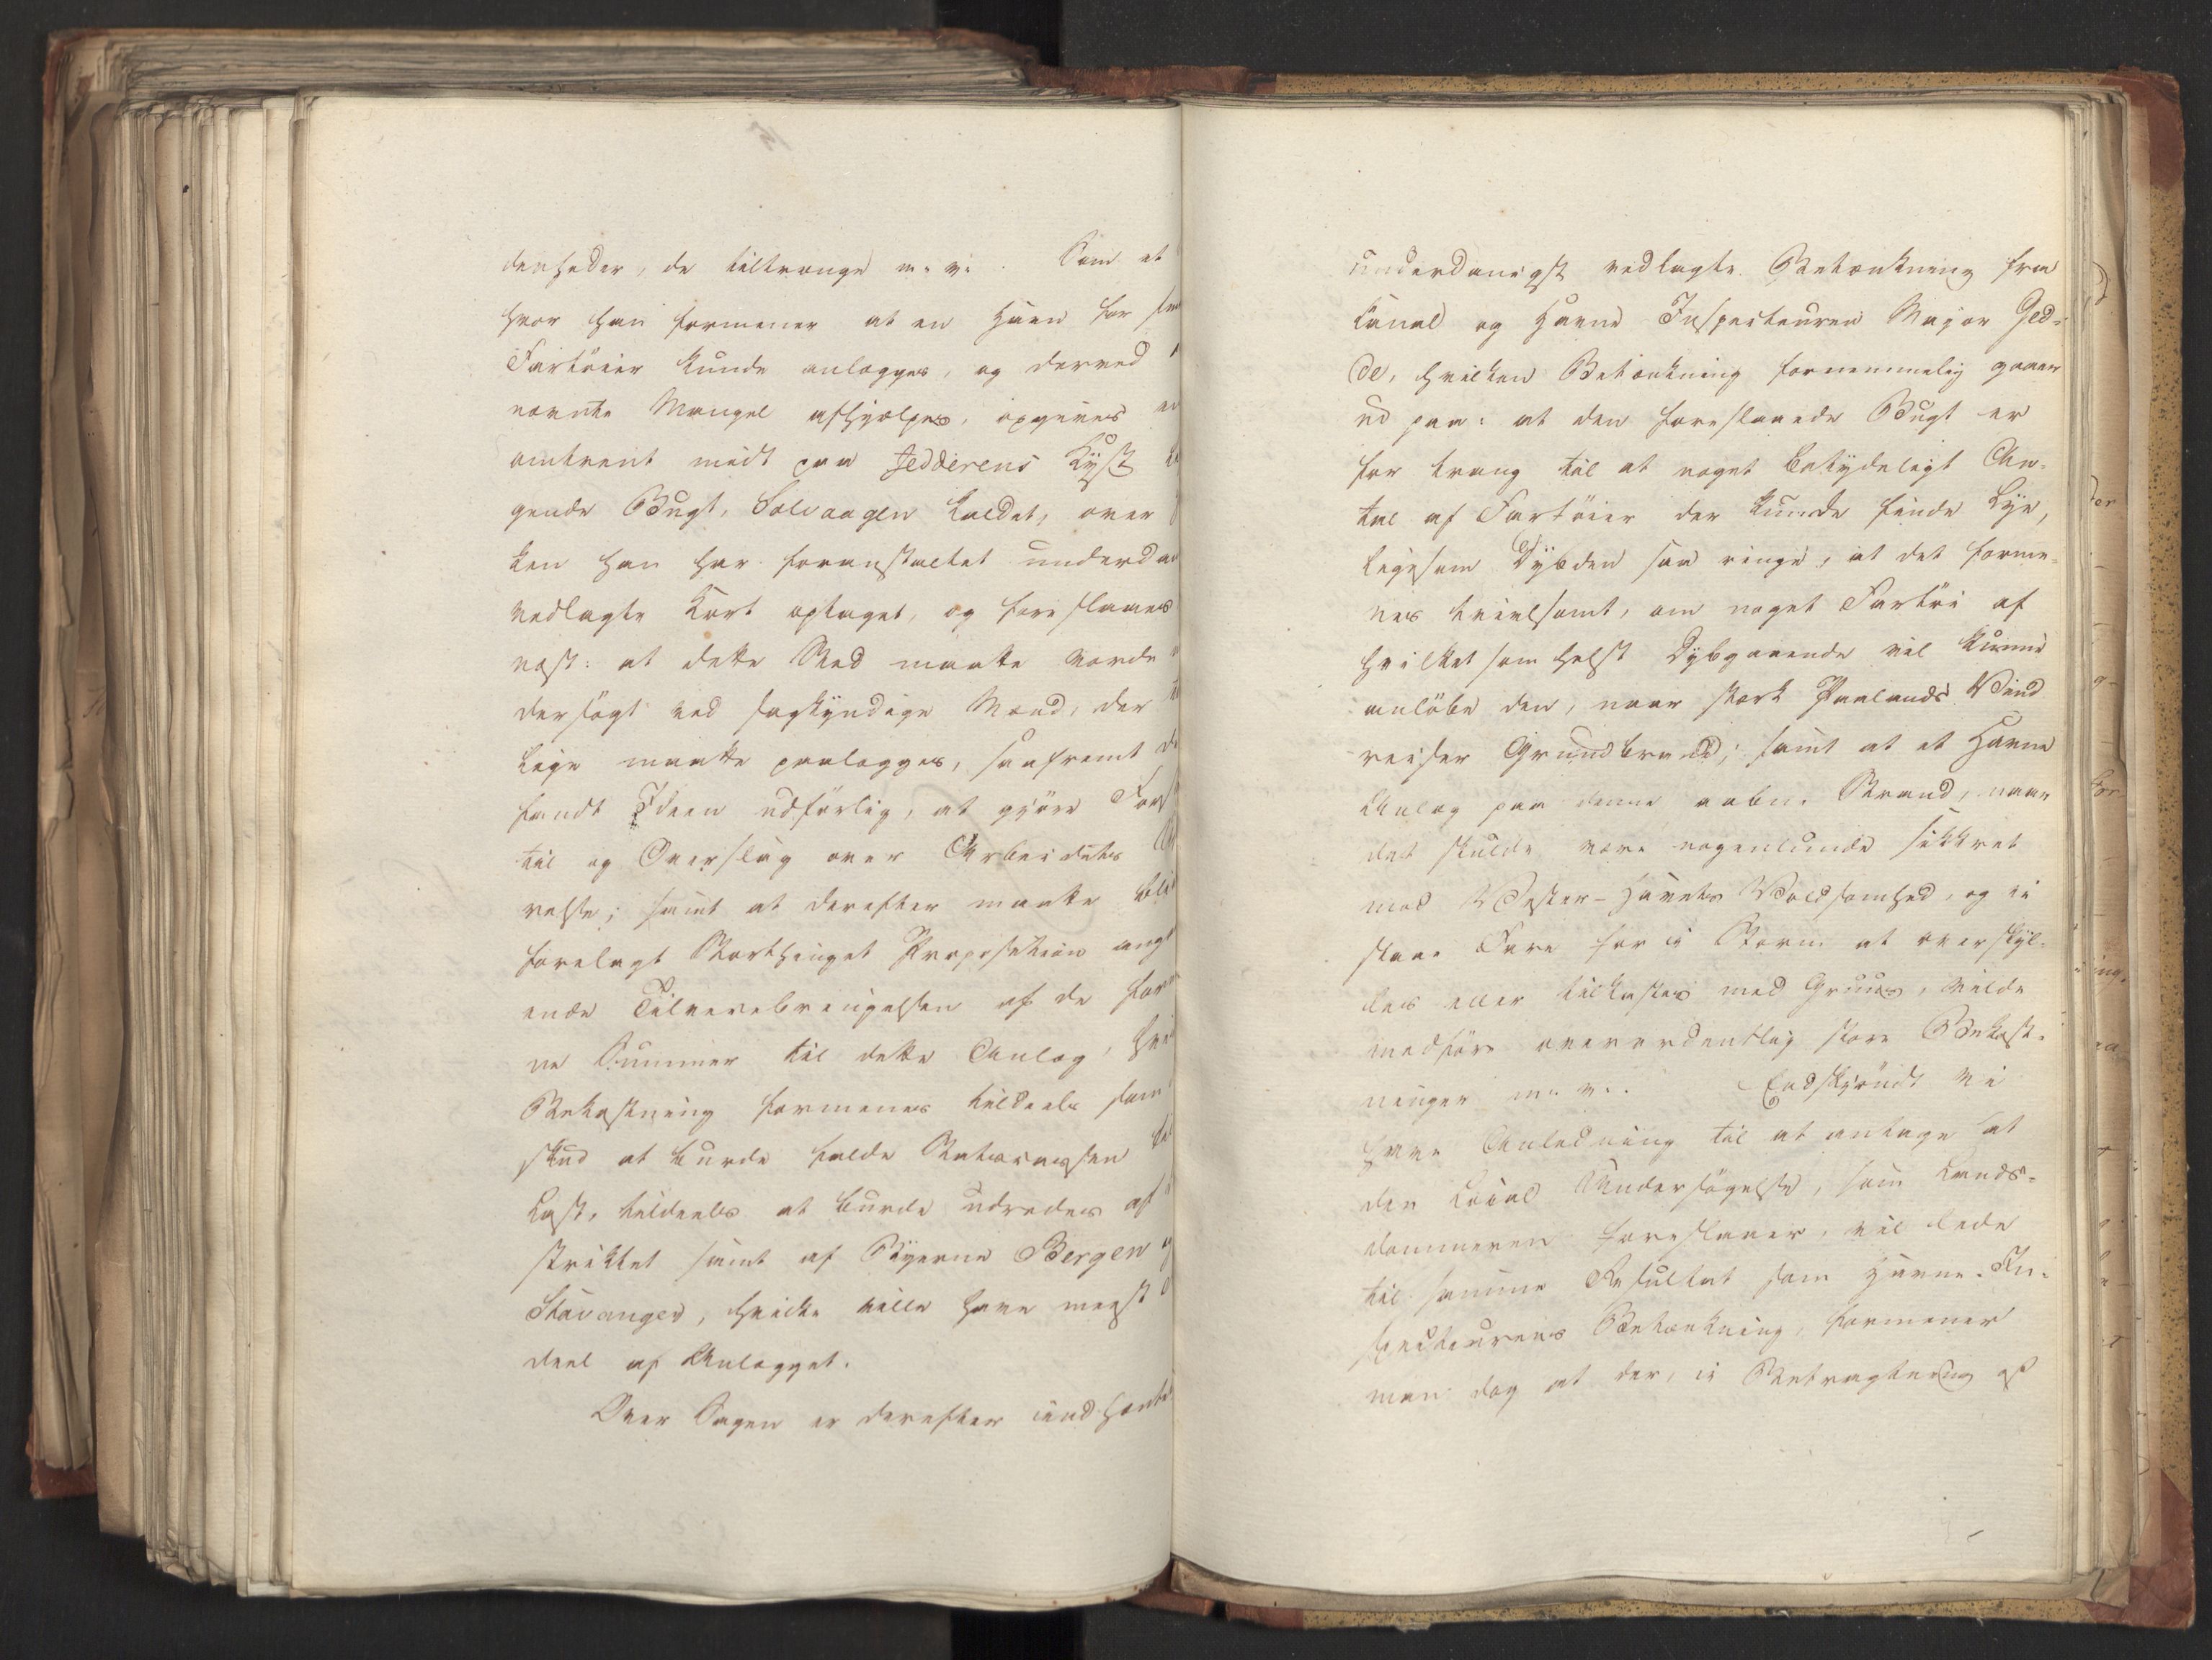 denheder, de tiltrænge m. v. Som et
hvor han formener at en Havn for
Fartöier kunde anlægges, og derved
nævnte Mangel afhjælpes, opgives en
omtrent midt paa Jedderens Kyst
gende Bugt, Solvaagen kaldet, over
ken han har foranstaltet underda
vedlagte Kort optaget, og foreslaaes
næst: at dette Sted maatte vorde
dersögt ved sagkyndige Mænd, der
lige maatte paalægges, saafremt de
fandt Ideen udförlig, at gjöre Fors
til og Overslag over Arbeidets
relse; samt at derefter maatte bli
forelagt Storthinget Proposition ang
ende Tilveiebringelsen af de for
ne Summer til dette Anlæg, hvi
Bekostning formenes tildeels som
skud at burde falde Statscassen til
Last, tildeels at burde udredes af
striktet samt af Byerne Bergen
Stavanger, hvilke ville have meest
deel af Anlægget.
Over Sagen er derefter indhentet
underdanigst vedlagte Betænkning fra
Canal og Havne Inspecteuren Major Ged-
de, hvilken Betænkning fornemmelig gaaer
ud paa: at den foreslaaede Bugt er
for trang til at noget betydeligt An-
tal af Fartöier der kunde finde Lye,
ligesom Dybden saa ringe, at det forme-
nes tvivlsomt, om noget Fartöi af
hvilketsomhelst Dybgaaende vil kunne
anlöbe den, naar stærk Paalands Vind
reiser Grundbrad; samt at et Havne
Anlæg paa denne aabne Strand, naar
det skulde være nogenlunde sikkret
mod Vester-Havets Voldsomhed, og ei
staae Fare for i Storm at overskyl-
les eller tilkastes med Gruus, vilde
medföre overordentlig store Bekost-
ninger m. v. Endskjöndt vi
have Anledning til at antage at
den Local Undersögelse, som Lands-
dommeren foreslaaer, vil lede
til samme Resultat som Havne-In-
specteurens Betænkning, formener
man dog at der, i Betragtning af